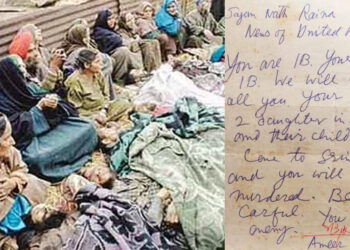 Nath Raina
News of United
You are IB. You
IB. We will
all you Your
2 daughter in
and their child
Come to
and you will
murdered. Be
Carful. You
enemy.
Ameer